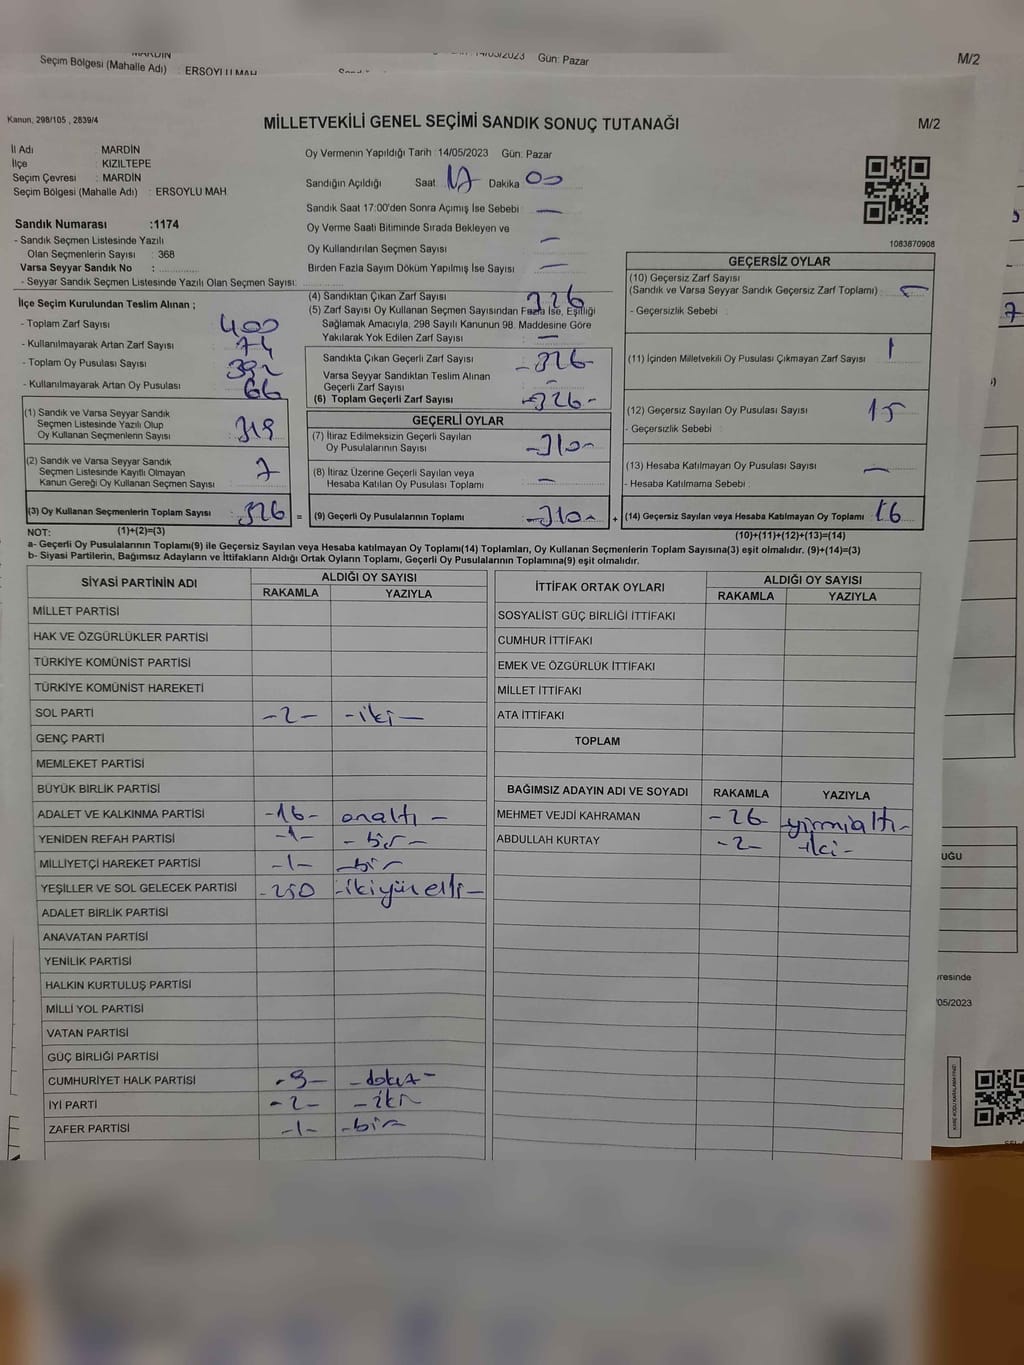 MARDİN
Seçim Bölgesi (Mahalle Adı) : ERSOYLU MAH
14/05/2023 Gün: Pazar
M/2
Kanun, 298/105 , 2839/4
MİLLETVEKİLİ GENEL SEÇİMİ SANDIK SONUÇ TUTANAĞI
M/2
İl Adı MARDİN
İlçe : KIZILTEPE
Seçim Çevresi : MARDİN
Seçim Bölgesi (Mahalle Adı) : ERSOYLU MAH
Oy Vermenin Yapıldığı Tarih :14/05/2023 Gün: Pazar
Sandığın Açıldığı Saat 17 Dakika 00
Sandık Saat 17:00'den Sonra Açımış İse Sebebi : —
Oy Verme Saati Bitiminde Sırada Bekleyen ve
Oy Kullandırılan Seçmen Sayısı —
Birden Fazla Sayım Döküm Yapılmış İse Sayısı —
1083870908
Sandık Numarası :1174
- Sandık Seçmen Listesinde Yazılı
Olan Seçmenlerin Sayısı : 368
Varsa Seyyar Sandık No :
- Seyyar Sandık Seçmen Listesinde Yazılı Olan Seçmen Sayısı:
İlçe Seçim Kurulundan Teslim Alınan ;
- Toplam Zarf Sayısı 400
- Kullanılmayarak Artan Zarf Sayısı 74
- Toplam Oy Pusulası Sayısı 392
- Kullanılmayarak Artan Oy Pusulası 66
(1) Sandık ve Varsa Seyyar Sandık
Seçmen Listesinde Yazılı Olup
Oy Kullanan Seçmenlerin Sayısı : 319
(2) Sandık ve Varsa Seyyar Sandık
Seçmen Listesinde Kayıtlı Olmayan
Kanun Gereği Oy Kullanan Seçmen Sayısı : 7
(3) Oy Kullanan Seçmenlerin Toplam Sayısı : 326 =
(4) Sandıktan Çıkan Zarf Sayısı 326
(5) Zarf Sayısı Oy Kullanan Seçmen Sayısından Fazla İse, Eşitliği
Sağlamak Amacıyla, 298 Sayılı Kanunun 98. Maddesine Göre
Yakılarak Yok Edilen Zarf Sayısı : —
Sandıkta Çıkan Geçerli Zarf Sayısı -326
Varsa Seyyar Sandıktan Teslim Alınan
Geçerli Zarf Sayısı -
(6) Toplam Geçerli Zarf Sayısı -326-
GEÇERLİ OYLAR
(7) İtiraz Edilmeksizin Geçerli Sayılan
Oy Pusulalarının Sayısı -310-
(8) İtiraz Üzerine Geçerli Sayılan veya
Hesaba Katılan Oy Pusulası Toplamı —
(9) Geçerli Oy Pusulalarının Toplamı -310- +
GEÇERSİZ OYLAR
(10) Geçersiz Zarf Sayısı
(Sandık ve Varsa Seyyar Sandık Geçersiz Zarf Toplamı) : —
- Geçersizlik Sebebi :
(11) İçinden Milletvekili Oy Pusulası Çıkmayan Zarf Sayısı 1
(12) Geçersiz Sayılan Oy Pusulası Sayısı 15
- Geçersizlik Sebebi :
(13) Hesaba Katılmayan Oy Pusulası Sayısı —
- Hesaba Katılmama Sebebi :
(14) Geçersiz Sayılan veya Hesaba Katılmayan Oy Toplamı : 16
NOT: (1)+(2)=(3)
(10)+(11)+(12)+(13)=(14)
a- Geçerli Oy Pusulalarının Toplamı(9) ile Geçersiz Sayılan veya Hesaba katılmayan Oy Toplamı(14) Toplamları, Oy Kullanan Seçmenlerin Toplam Sayısına(3) eşit olmalıdır. (9)+(14)=(3)
b- Siyasi Partilerin, Bağımsız Adayların ve İttifakların Aldığı Ortak Oyların Toplamı, Geçerli Oy Pusulalarının Toplamına(9) eşit olmalıdır.
SİYASİ PARTİNİN ADI ALDIĞI OY SAYISI
RAKAMLA YAZIYLA
MİLLET PARTİSİ
HAK VE ÖZGÜRLÜKLER PARTİSİ
TÜRKİYE KOMÜNİST PARTİSİ
TÜRKİYE KOMÜNİST HAREKETİ
SOL PARTİ -2- -iki-
GENÇ PARTİ
MEMLEKET PARTİSİ
BÜYÜK BİRLİK PARTİSİ
ADALET VE KALKINMA PARTİSİ -16- onaltı -
YENİDEN REFAH PARTİSİ -1- - bir -
MİLLİYETÇİ HAREKET PARTİSİ -1- -bir
YEŞİLLER VE SOL GELECEK PARTİSİ -250 -ikiyüzelli-
ADALET BİRLİK PARTİSİ
ANAVATAN PARTİSİ
YENİLİK PARTİSİ
HALKIN KURTULUŞ PARTİSİ
MİLLİ YOL PARTİSİ
VATAN PARTİSİ
GÜÇ BİRLİĞİ PARTİSİ
CUMHURİYET HALK PARTİSİ -9- -dokuz-
İYİ PARTİ -2- -iki-
ZAFER PARTİSİ -1- -bir-
İTTİFAK ORTAK OYLARI ALDIĞI OY SAYISI
RAKAMLA YAZIYLA
SOSYALİST GÜÇ BİRLİĞİ İTTİFAKI
CUMHUR İTTİFAKI
EMEK VE ÖZGÜRLÜK İTTİFAKI
MİLLET İTTİFAKI
ATA İTTİFAKI
TOPLAM
BAĞIMSIZ ADAYIN ADI VE SOYADI RAKAMLA YAZIYLA
MEHMET VEJDİ KAHRAMAN -26 yirmialtı-
ABDULLAH KURTAY -2- -iki-
7
UĞU
resinde
/05/2023